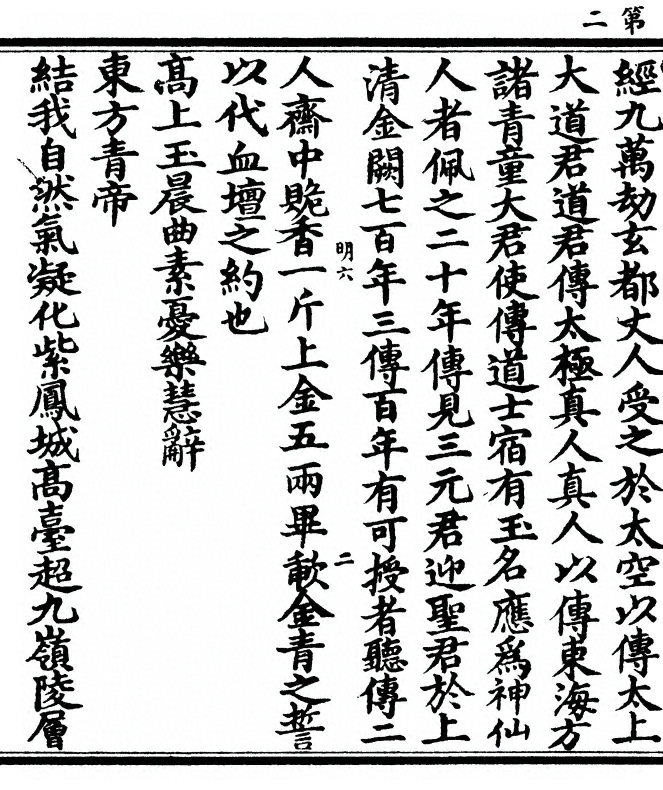 第二
經九萬劫玄都丈人受之於太空以傳太上
大道君道君傳太極真人真人以傳東海方
諸青童大君使傳道士宿有玉名應爲神仙
人者佩之二十年傳見三元君迎聖君於上
清金闕七百年三傳百年有可授者聽傳二
明六
二
人齋中貺香一斤上金五兩畢歃金青之誓
以代血壇之約也
高上玉晨曲素憂樂慧辭
東方青帝
結我自然氣凝化紫鳳城高臺超九嶺陵層